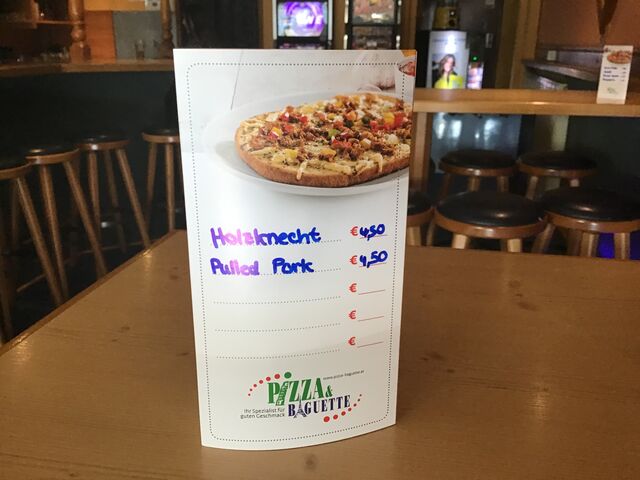 Holzknecht € 4,50
Pulled Pork € 4,50
€
€
€
www.pizza-baguette.at
PIZZA &
BAGUETTE
Ihr Spezialist für
guten Geschmack